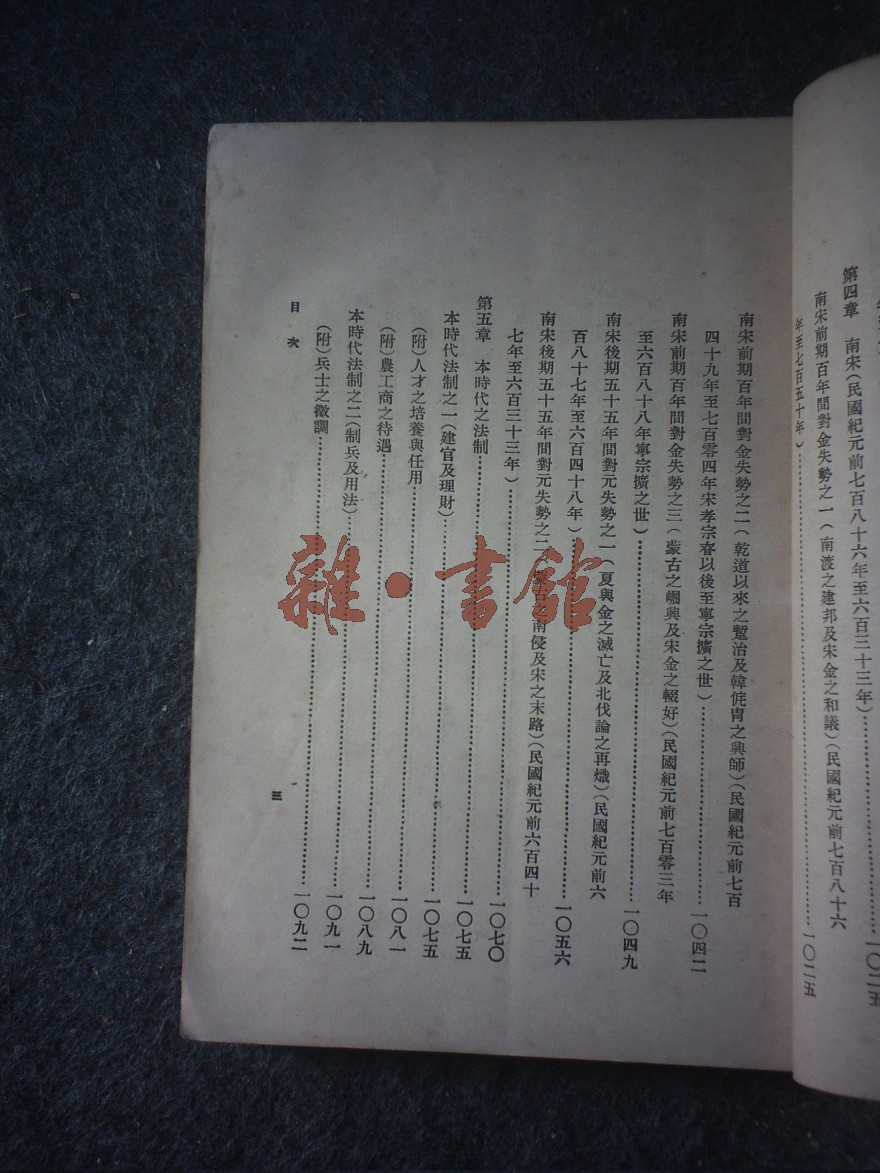 第四章　南宋(民國紀元前七百八十六年至六百三十三年)……一〇二五
南宋前期百年間對金失勢之一(南渡之建邦及宋金之和議)(民國紀元前七百八十六
年至七百五十年)……一〇二五
南宋前期百年間對金失勢之二(乾道以來之蹔治及韓侂冑之興師)(民國紀元前七百
四十九年至七百零四年宋孝宗眘以後至寧宗擴之世)……一〇四二
南宋前期百年間對金失勢之三(蒙古之崛興及宋金之輟好)(民國紀元前七百零三年
至六百八十八年寧宗擴之世)……一〇四九
南宋後期五十五年間對元失勢之一(夏與金之滅亡及北伐論之再熾)(民國紀元前六
百八十七年至六百四十八年)……一〇五六
南宋後期五十五年間對元失勢之二(蒙古之南侵及宋之末路)(民國紀元前六百四十
七年至六百三十三年)……一〇七〇
第五章　本時代之法制……一〇七五
本時代法制之一(建官及理財)……一〇七五
(附)人才之培養與任用……一〇八一
(附)農工商之待遇……一〇八九
本時代法制之二(制兵及用法)……一〇九一
(附)兵士之徵調……一〇九二
目次
三
雜·書館